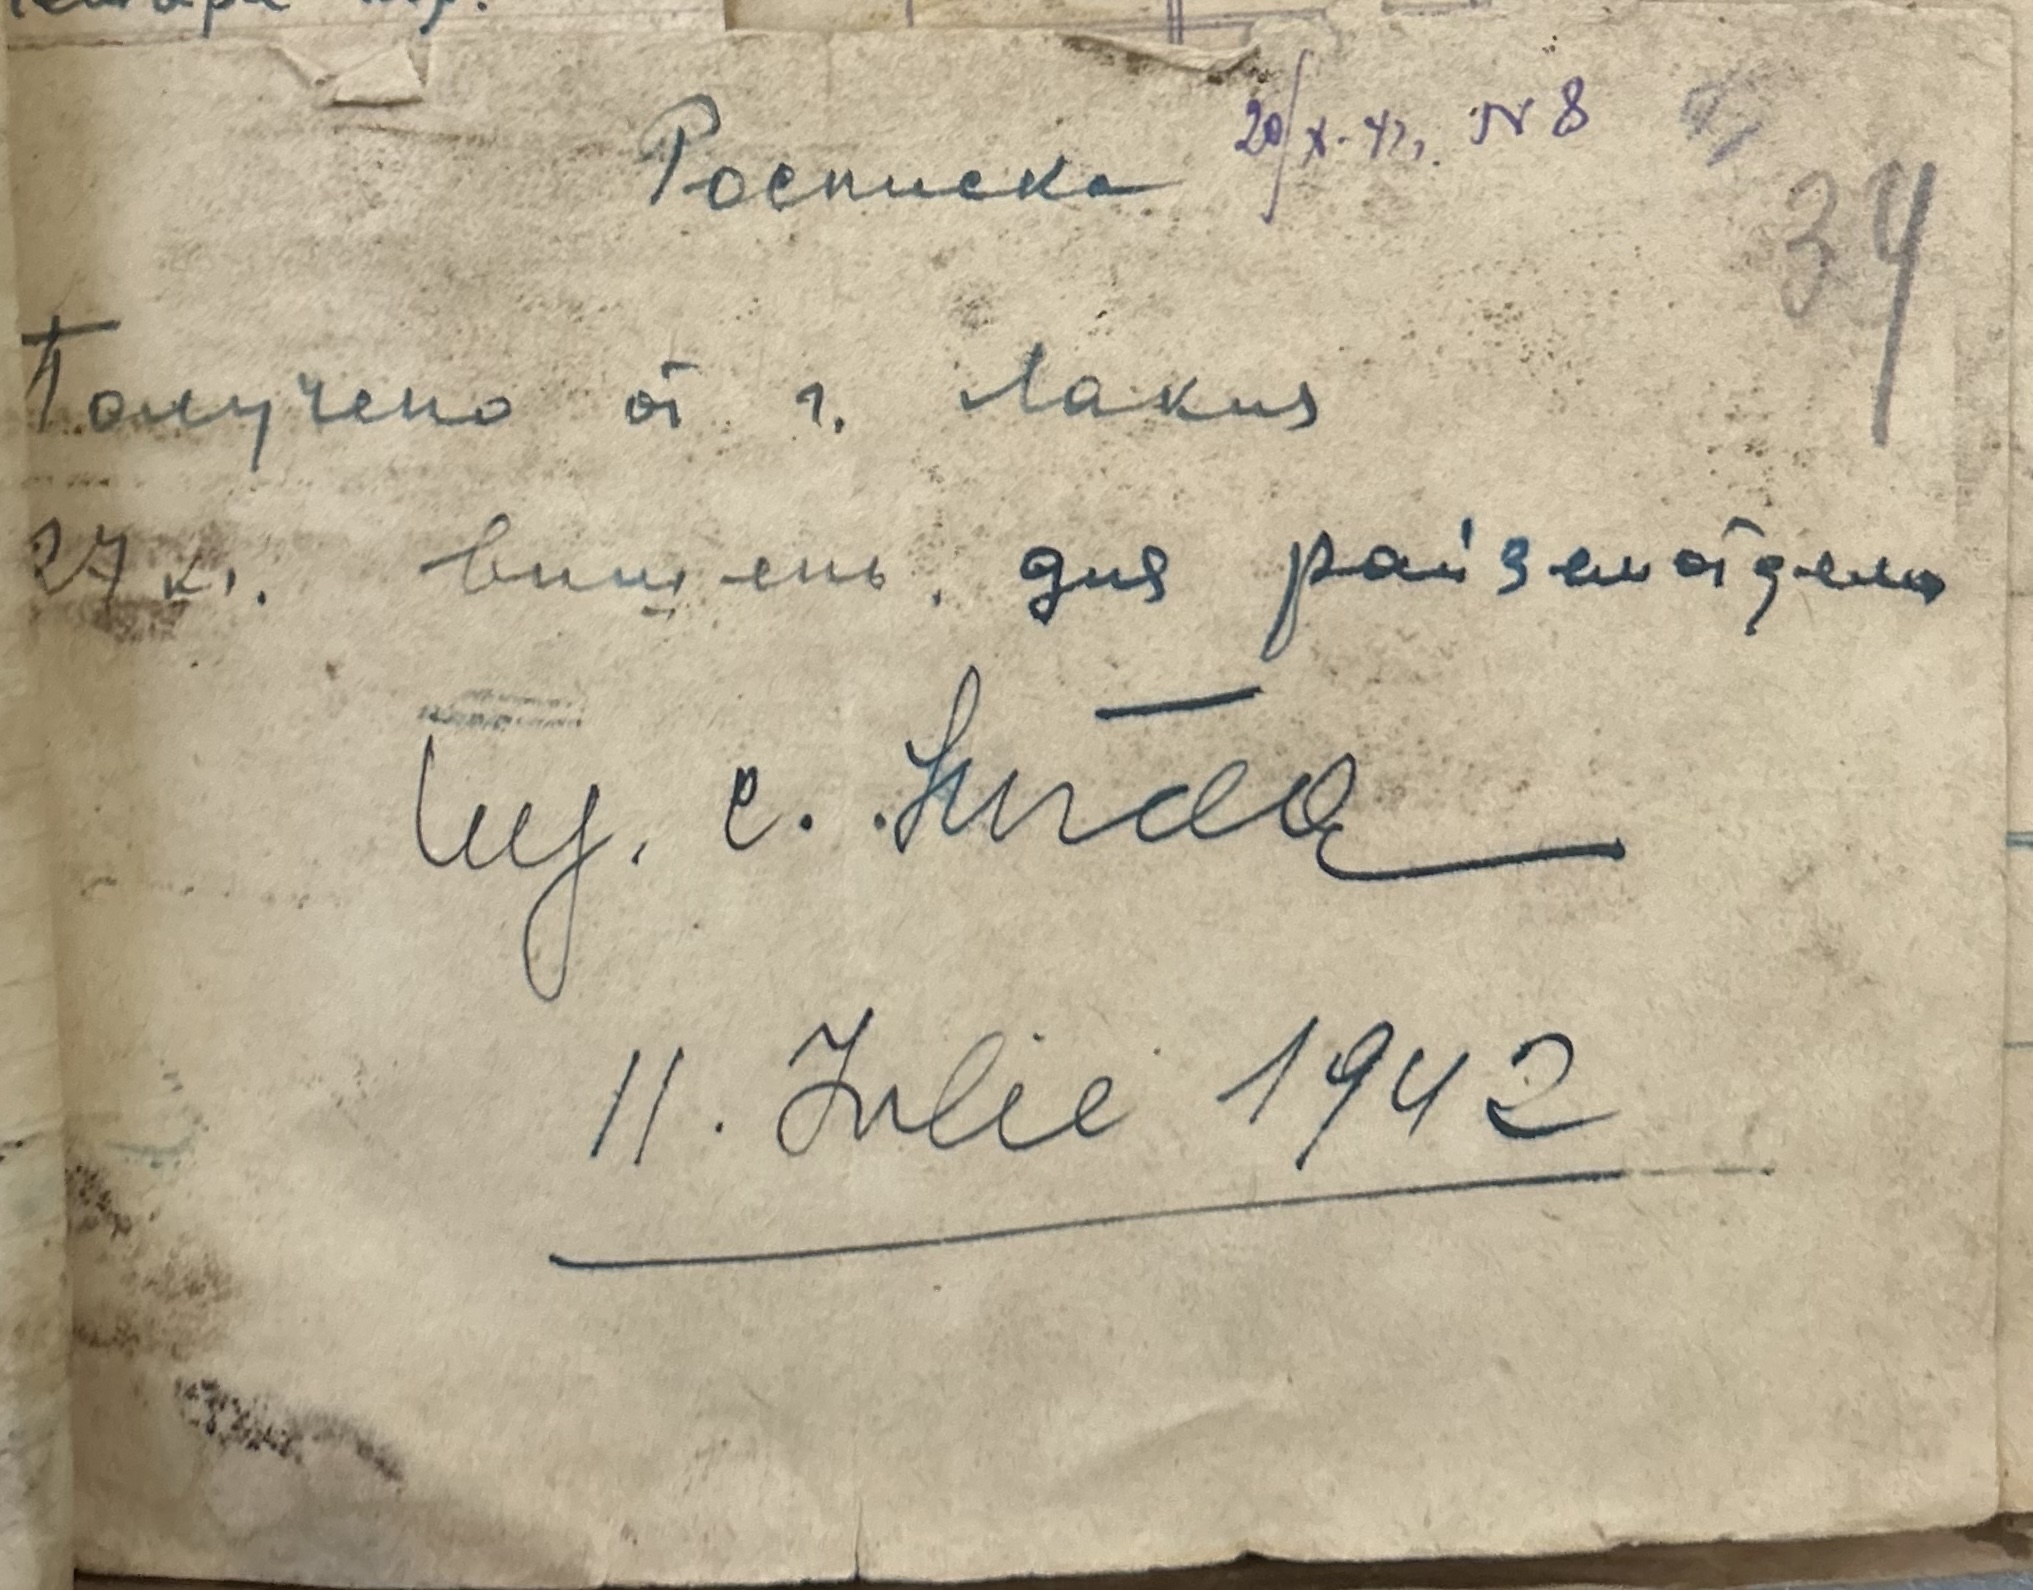 Росписка
20/X-42г. N 8
34
Получено от г. Лакия
27 кг. вишень. для райземотдела
11. Iulie 1942